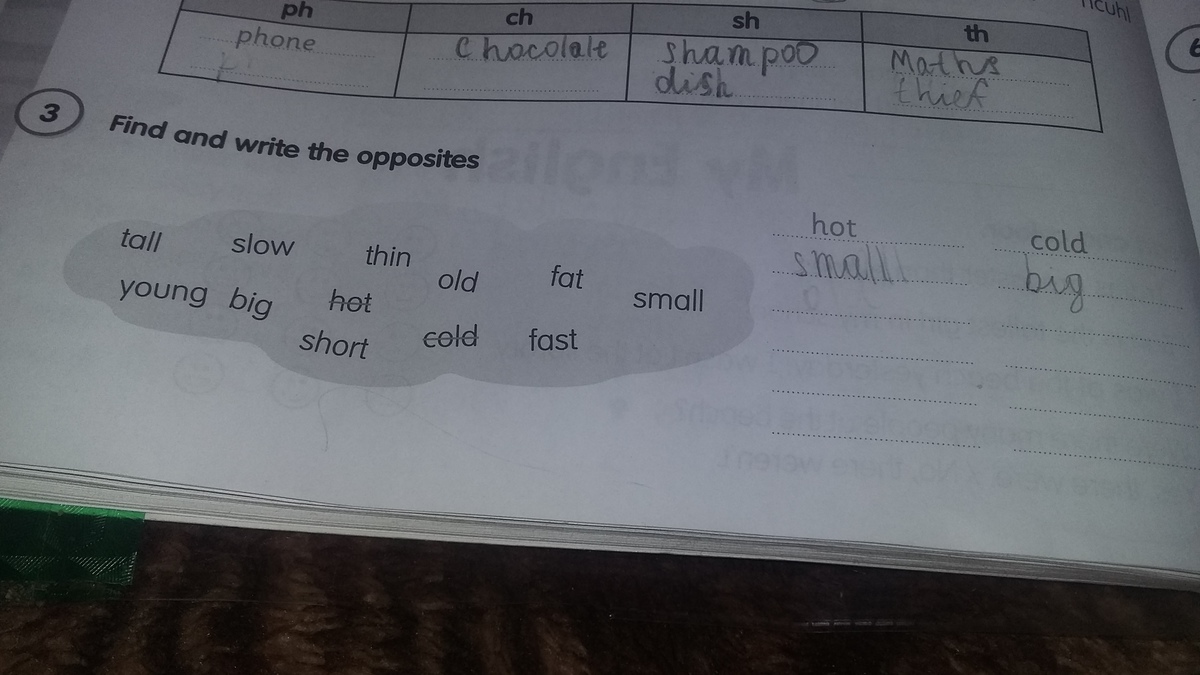 ph ch sh th
phone Chocolate shampoo Maths
dish thief
3 Find and write the opposites
tall slow thin old fat
young big hot small
short cold fast
hot cold
small big